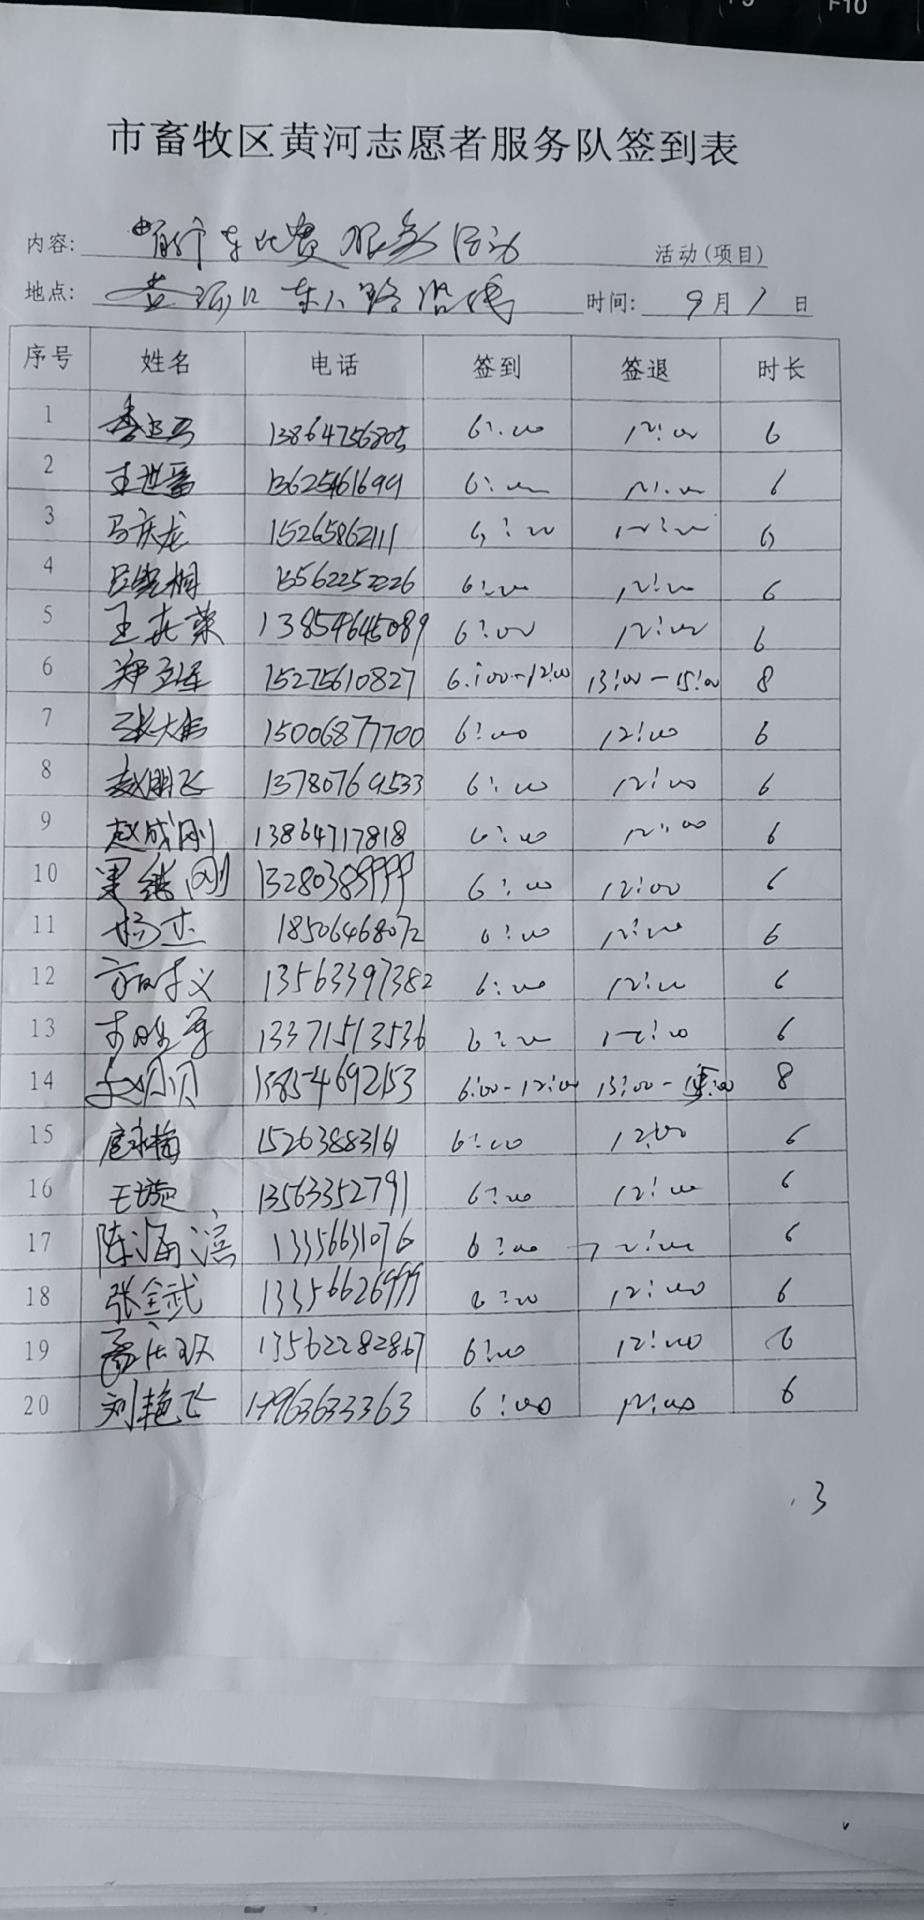 F10
市畜牧区黄河志愿者服务队签到表
内容: 自行车比赛服务活动 活动(项目)
地点: 黄河口东八路沿线 时间: 9月1日
序号 姓名 电话 签到 签退 时长
1 13864756805 6:00 12:00 6
2 王世番 13625461699 6:00 12:00 6
3 马庆龙 15265862111 6:00 12:00 6
4 13562252226 6:00 12:00 6
5 王在荣 13854645089 6:00 12:00 6
6 15275610827 6:00-12:00 13:00-15:00 8
7 张大伟 15006877700 6:00 12:00 6
8 赵鹏飞 13780769533 6:00 12:00 6
9 赵成刚 13864717818 6:00 12:00 6
10 梁继刚 13280389999 6:00 12:00 6
11 杨杰 18506468072 6:00 12:00 6
12 13563397382 6:00 12:00 6
13 13371513536 6:00 12:00 6
14 13854692153 6:00-12:00 13:00-15:00 8
15 扈永梅 15263883161 6:00 12:00 6
16 王璇 13563352791 6:00 12:00 6
17 陈海滨 13356631076 6:00 12:00 6
18 张金武 13356626999 6:00 12:00 6
19 13562282867 6:00 12:00 6
20 刘艳飞 17963633363 6:00 12:00 6
3